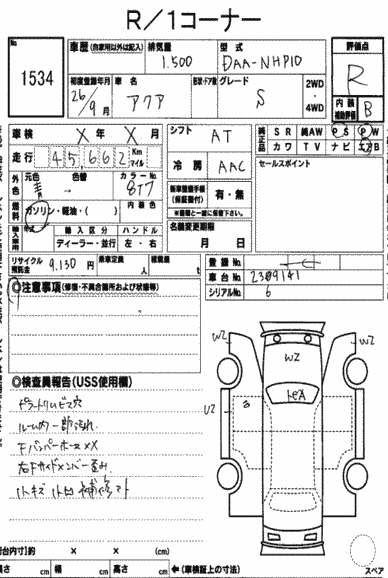 R/1コーナー
No.
1534
車歴 (自家用以外は記入)
排気量
型式
評価点
1.500
DAA-NHP10
R
初度登録年月
車名
形状・ドア数
グレード
2WD
・
4WD
26年
9月
アクア
S
内装
補助評価
B
車検 X年 X月
シフト AT
純正品
SR 純AW PS PW
カワ TV ナビ エアB
走行 45662 Km マイル
冷房 AAC
セールスポイント
外色
元色
色替
カラーNo.
877
新車整備手帳
(保証書付)
有・無
※書類と一緒に保管下さい。
燃料
ガソリン・軽油・( )
内装色
名義変更期限
月 日
輸入車用
輸入区分
ハンドル
ディーラー・並行
左・右
リサイクル
預託金
9.130円
乗車定員
人
積載量
t
登録No.
車台No. 2309141
シリアルNo. 6
◎注意事項 (修復・不具合箇所および状態等)
◎検査員報告(USS使用欄)
ルーム内一部汚れ
FバンパーホースXX
右Fサイドメンバー歪み
小キズ 小凹
W2
W2
W2
U2
荷台内寸)約 × × (cm)
長さ cm 幅 cm 高さ cm
←(車検証上の寸法)
スペア